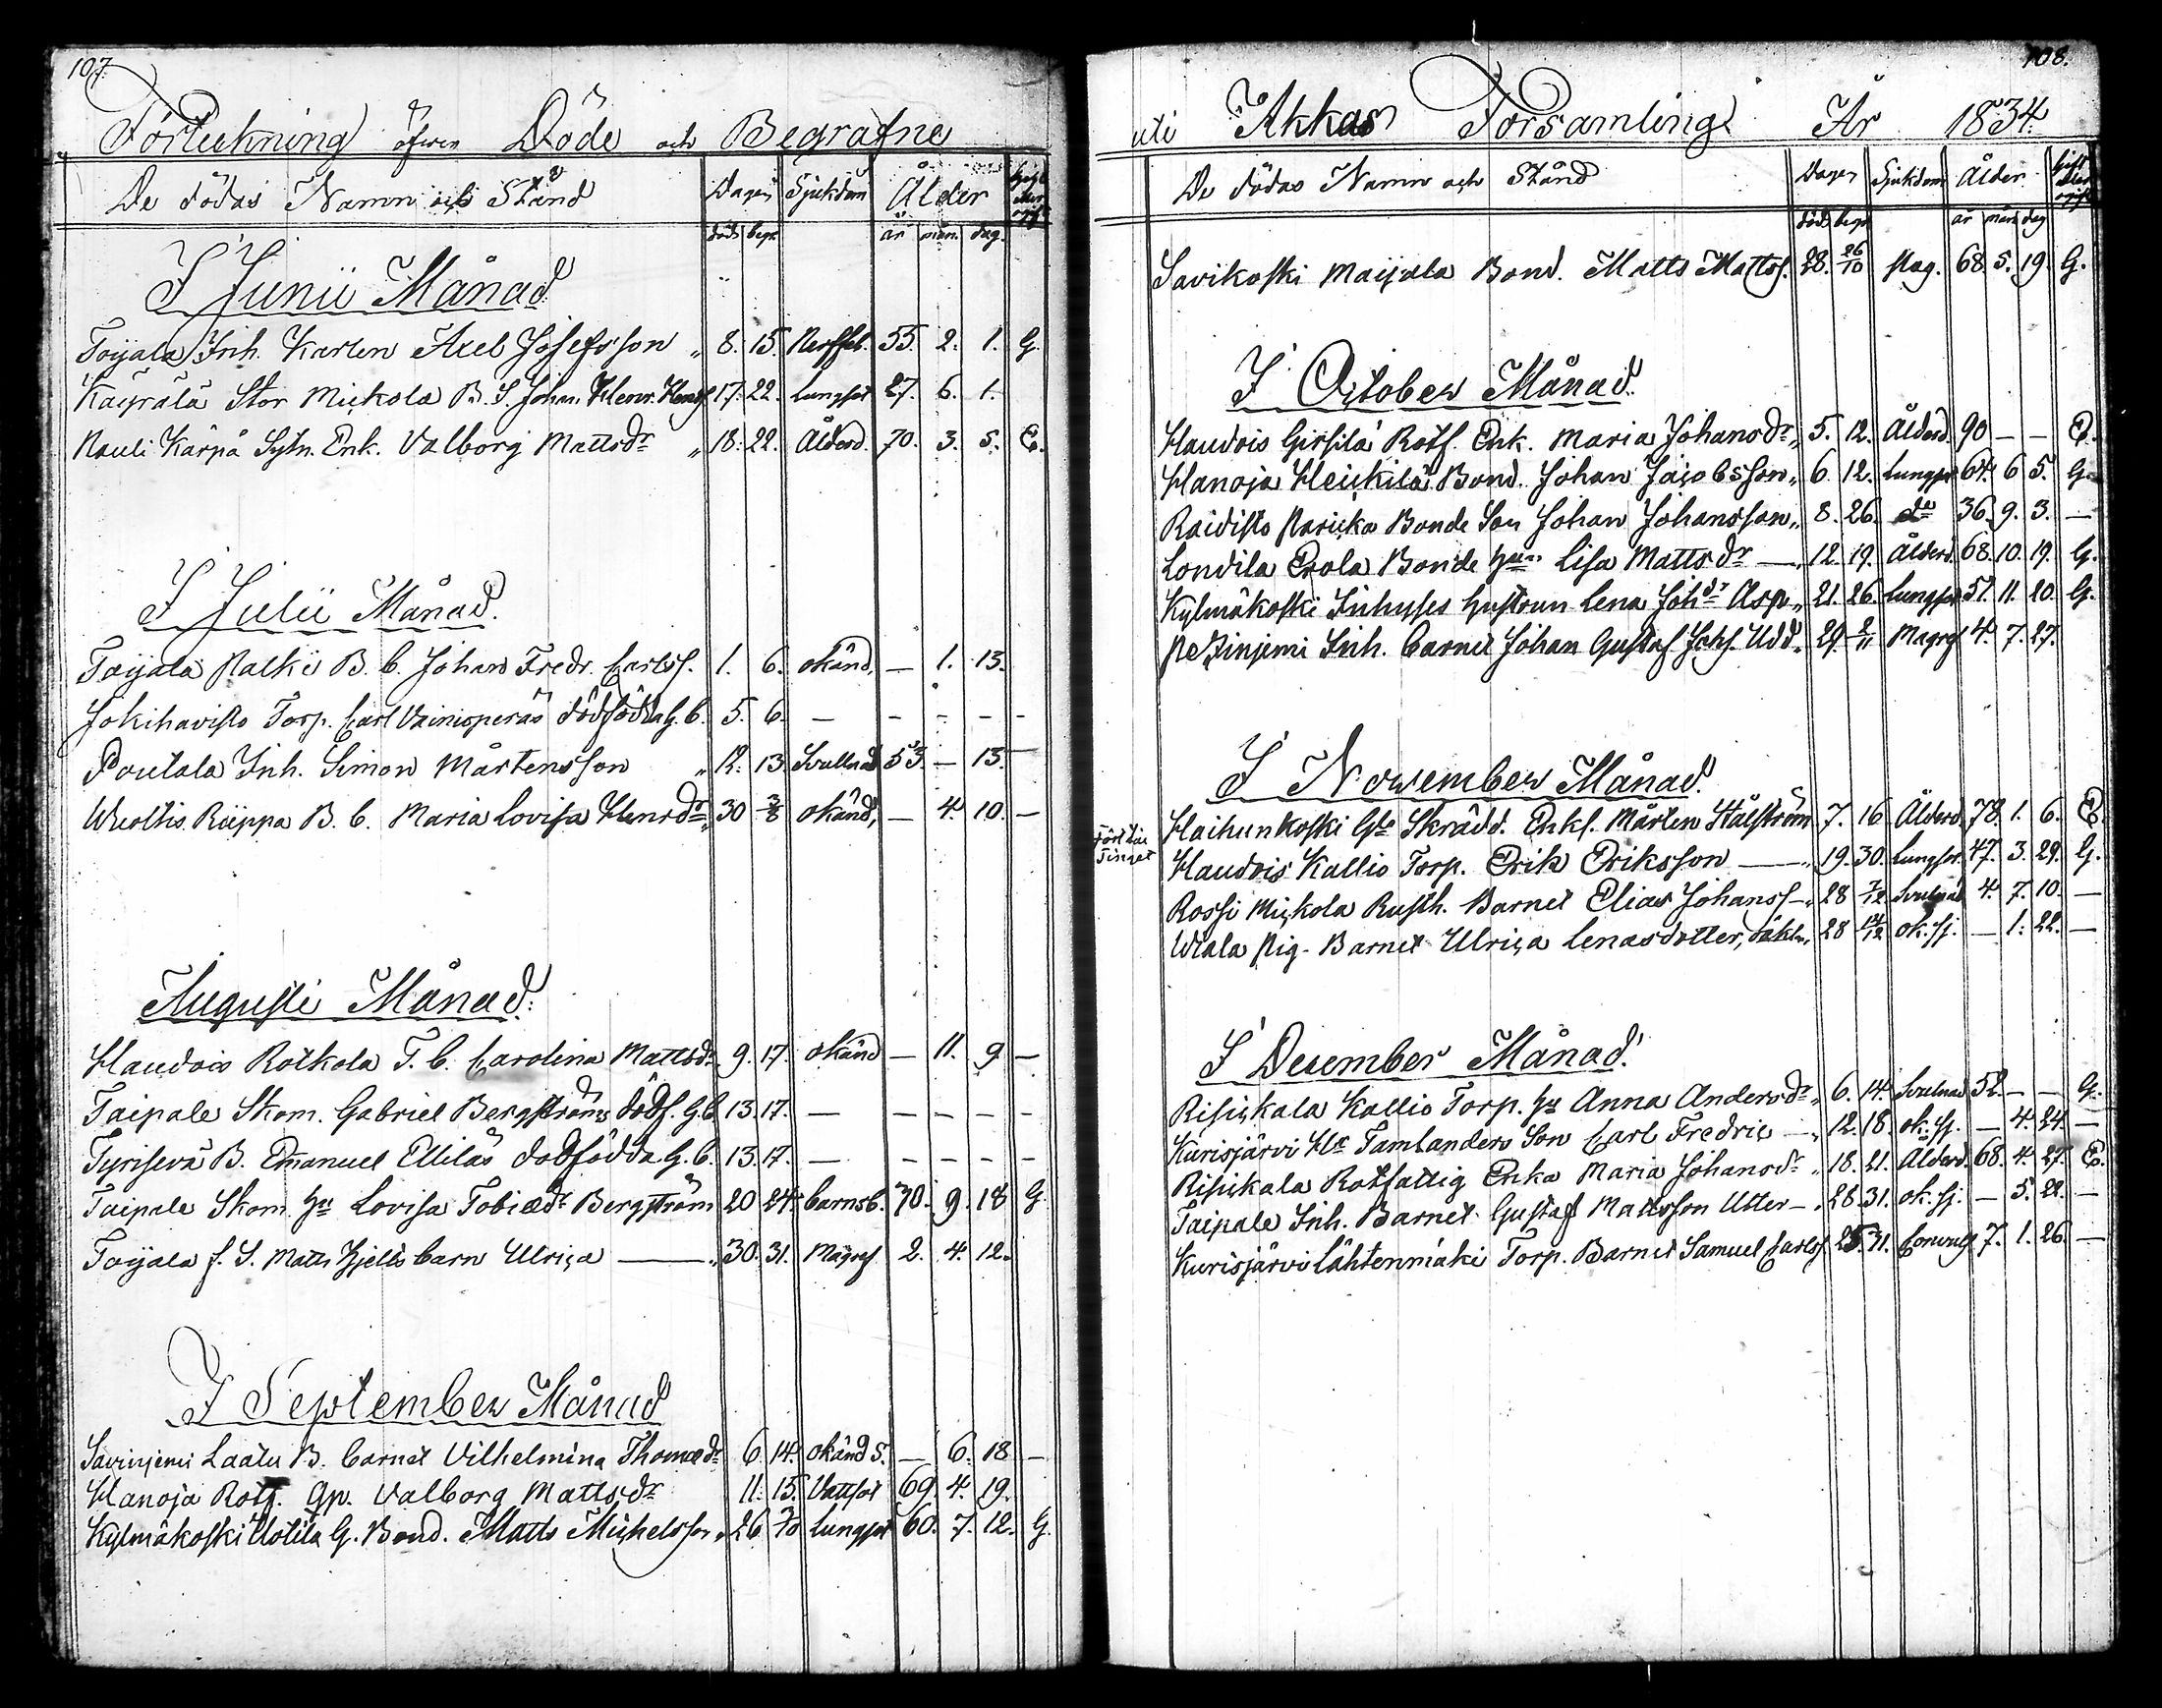 107.
Förteckning öfwer Döde och Begrafne
De dödas Namn och Stånd Dagen Sjukdom Ålder
död begr. år mån. dag.
I Junii Månad
Toijala Inh. Karlen Axel Josefsson " 8. 15. 55. 2. 1. G.
Käyrälä Stor Mickola B. S. Johan Henr. 17. 22. Lungsot 27. 6. 1.
Nauli Kärpä Sytn. Enk. Valborg Mattsdr " 18. 22. Ålderd. 70. 3. 5. E.
I Julii Månad.
Toijala Nalki B. b. Johan Fredr. Carlss. 1. 6. okänd, — 1. 13.
Jokihavisto Torp. Carl Vainionperäs dödfödda G. b. 5. 6. — - - - -
Poutala Inh. Simon Mårtensson " 12. 13. Svullnad 53. — 13. —
Wuoltis Riippa B. b. Maria Lovisa Henrdr " 30 3/8 okänd, — 4. 10. —
Augusti Månad.
Haudois Rotkola T. b. Carolina Mattsdr 9. 17. okänd — 11. 9 —
Taipale Skom. Gabriel Bergströms dödf. G. b. 13. 17. — — — — —
Tyrisevä B. Emanuel Elliläs dödfödda G. b. 13. 17. — - - - -
Taipale Skom. Hu Lovisa Tobiædr Bergström 20 24. barnsb. 70. 9. 18 G.
Toijala f. S. Matts Kjells barn Ulrica — " 30. 31. Mägref 2. 4. 12.
I September Månad
Savinjemi Laatu B. barnet Vilhelmina Thomædr 6 14. okänd s. — 6. 18 —
Hanoja Rotf. Gp. Valborg Mattsdr 11. 15. Vattsot 69. 4. 19.
Kylmäkoski Uotila G. Bond. Matts Michelsson " 26 /10 Lungsot 60. 7. 12. G.
108.
uti Akkas Församling År 1834.
De dödas Namn och Stånd Dagen Sjukdom Ålder
död begr. år mån dag
Savikoski Maijala Bond. Matts Mattss. 28. 26/10 68. 5. 19. G.
I October Månad.
Haudois Girsilä Rotf. Enk. Maria Johansdr " 5. 12. Ålderd. 90 — — E.
Hanoja Heickilä Bond. Johan Jacobsson " 6 12. Lungsot 64. 6 5. G.
Raidisto Paricka Bonde Son Johan Johansson " 8. 26. do 36. 9. 3. —
Londila Erola Bonde Hu Lisa Mattsdr — " 12. 19. Ålderd. 68. 10. 19. G.
Kylmäkoski Inhyses hustrun Lena Johdr Asp " 21. 26. Lungsot 51. 11. 20. G.
Inh. barnet Johan Gustaf Johs. Udd " 29. 2/11 Magref 4. 7. 27.
I November Månad.
Haihunkoski Gle Skrädd. Enkl. Mårten Stålström 7. 16 Ålderd. 78. 1. 6. E.
Haudois Kallio Torp. Erik Eriksson — " 19. 30. Lungsot. 47. 3. 29. G.
Rossi Mickola Rusth. Barnet Elias Johanss — " 28 7/12 Svullnad 4. 7. 10. —
Wiala Pig. Barnet Ulrica Lenasdotter, oäkta " 28 14/12 ok. sj. — 1. 22. —
I December Månad.
Risickala Kallio Torp. Hu Anna Andersdr " 6. 14. Svullnad 52. — — G.
Kurisjärvi Tamlanders Son Carl Fredric — " 12. 18. ok. sj. — 4. 24. —
Risickala Rotfattig Enka Maria Johansdr " 18. 21. Ålderd. 68. 4. 27. E.
Taipale Inh. Barnet Gustaf Mattsson Utter — " 28. 31. ok. sj. — 5. 22. —
Kurisjärvi Lähtenmäki Torp. Barnet Samuel Carlss. 25. 31. Convuls 7. 1. 26. —